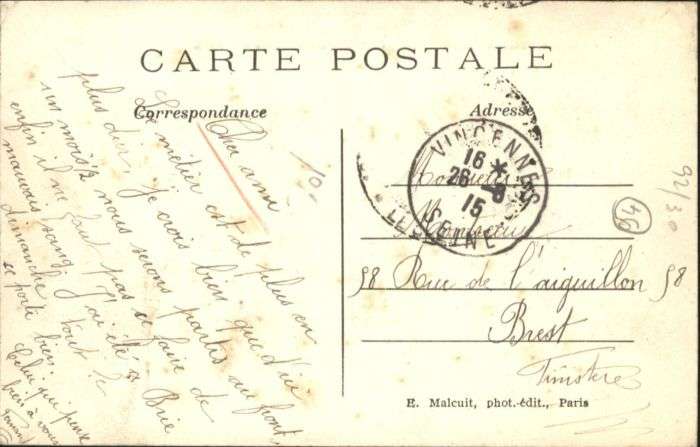 CARTE POSTALE
Correspondance
Adresse
Cher ami
Le métier est de plus en
plus dur je crois bien que d'ici
un mois ½ nous serons partis au front,
enfin il ne faut pas se faire de
mauvais sang j'ai été à Brie
dimanche tout le
se porte bien.
Celui qui pense
bien à vous
10-
VINCENNES
16 *
26 - 8
15
SEINE
58 Rue de l'aiguillon 58
Brest
Finistère
94
92/30
E. Malcuit, phot.-édit., Paris